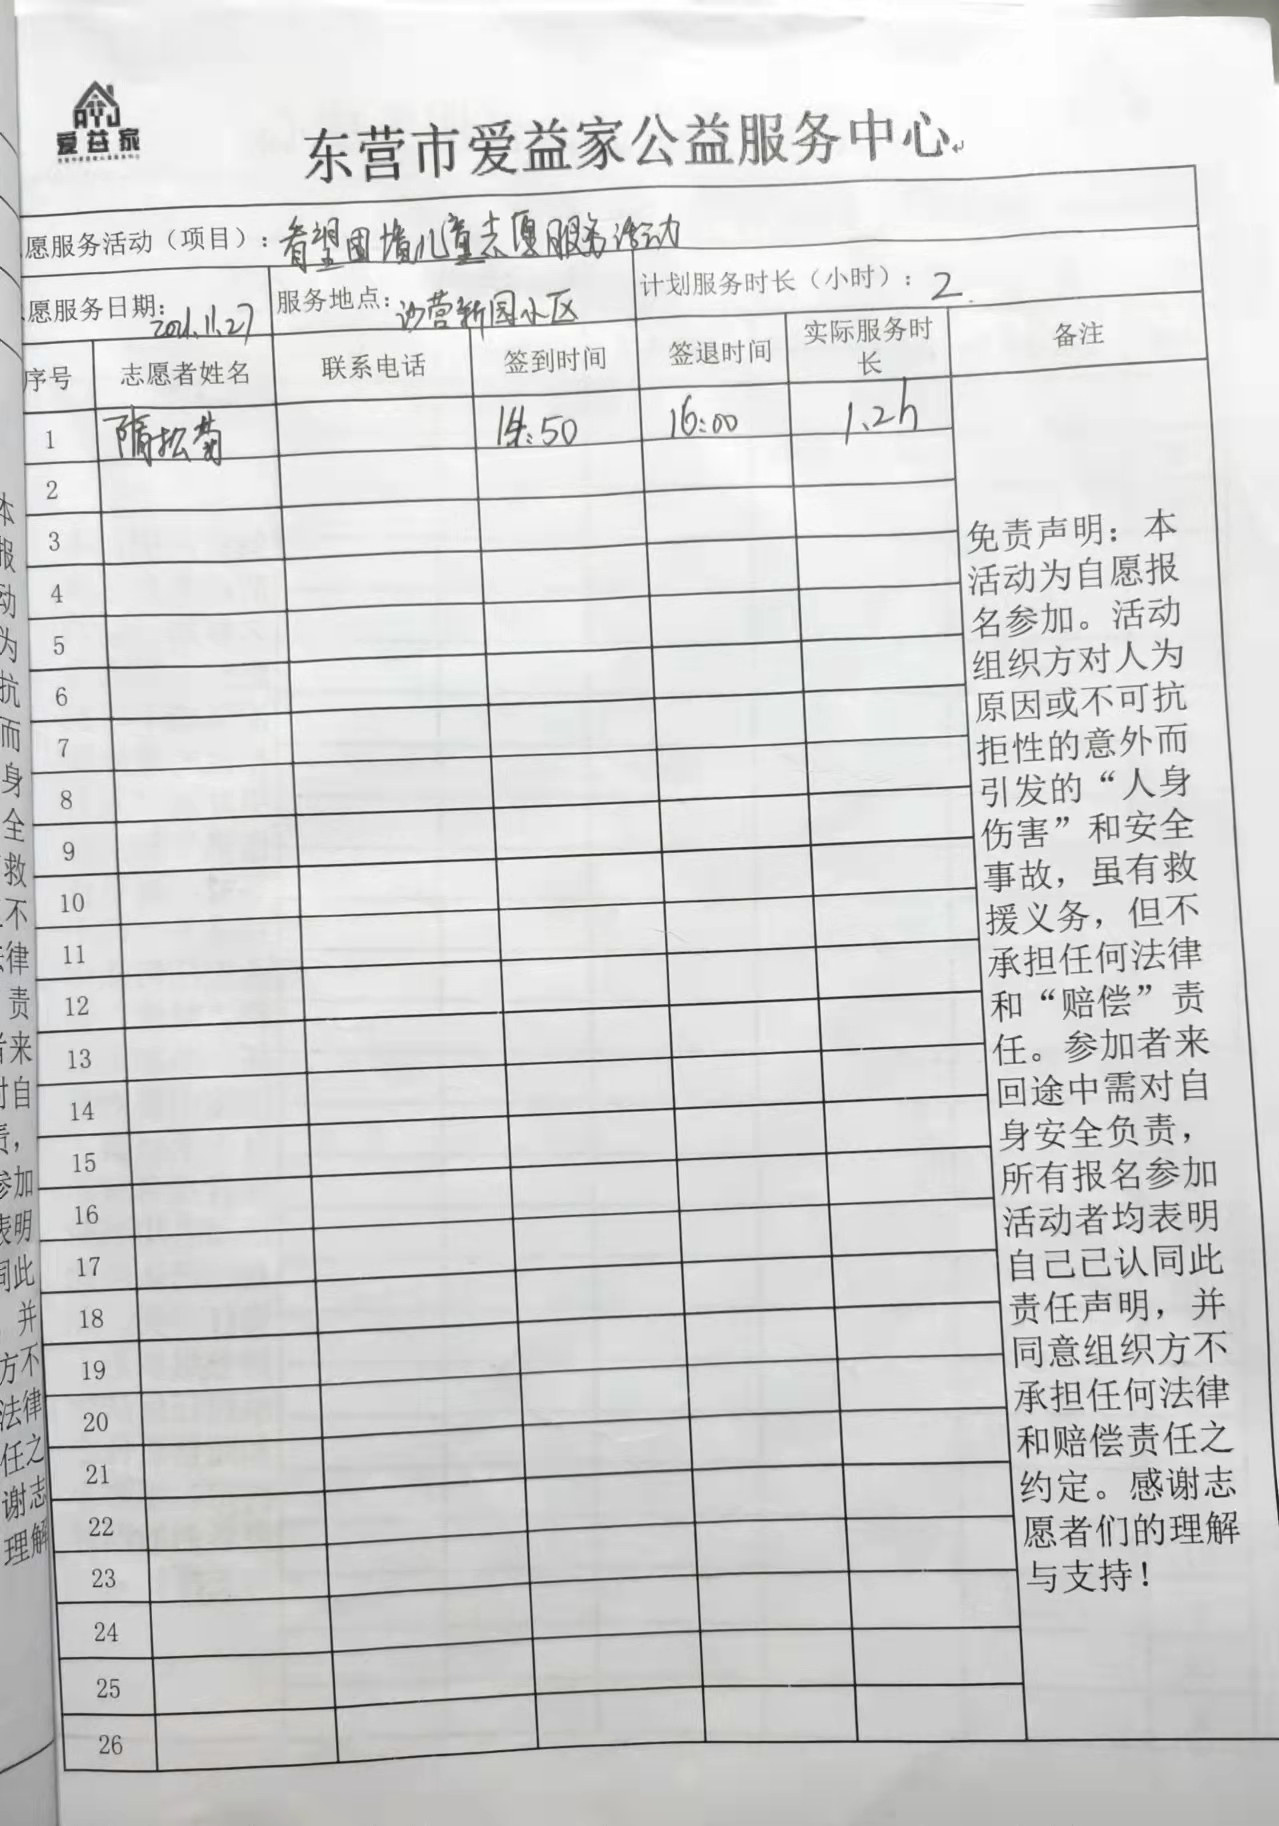 爱益家
东营市爱益家公益服务中心
愿服务活动（项目）：看望困境儿童志愿服务活动
愿服务日期：2021.11.27 服务地点：沙营新园小区 计划服务时长（小时）：2
序号 志愿者姓名 联系电话 签到时间 签退时间 实际服务时长 备注
1 隋松菊 14:50 16:00 1.2h
2
3
4
5
6
7
8
9
10
11
12
13
14
15
16
17
18
19
20
21
22
23
24
25
26
免责声明：本
活动为自愿报
名参加。活动
组织方对人为
原因或不可抗
拒性的意外而
引发的“人身
伤害”和安全
事故，虽有救
援义务，但不
承担任何法律
和“赔偿”责
任。参加者来
回途中需对自
身安全负责，
所有报名参加
活动者均表明
自己已认同此
责任声明，并
同意组织方不
承担任何法律
和赔偿责任之
约定。感谢志
愿者们的理解
与支持！
本
报
动
为
抗
而
身
全
救
不
律
责
来
自
责，
参加
表明
同此
并
方不
法律
任之
谢志
理解